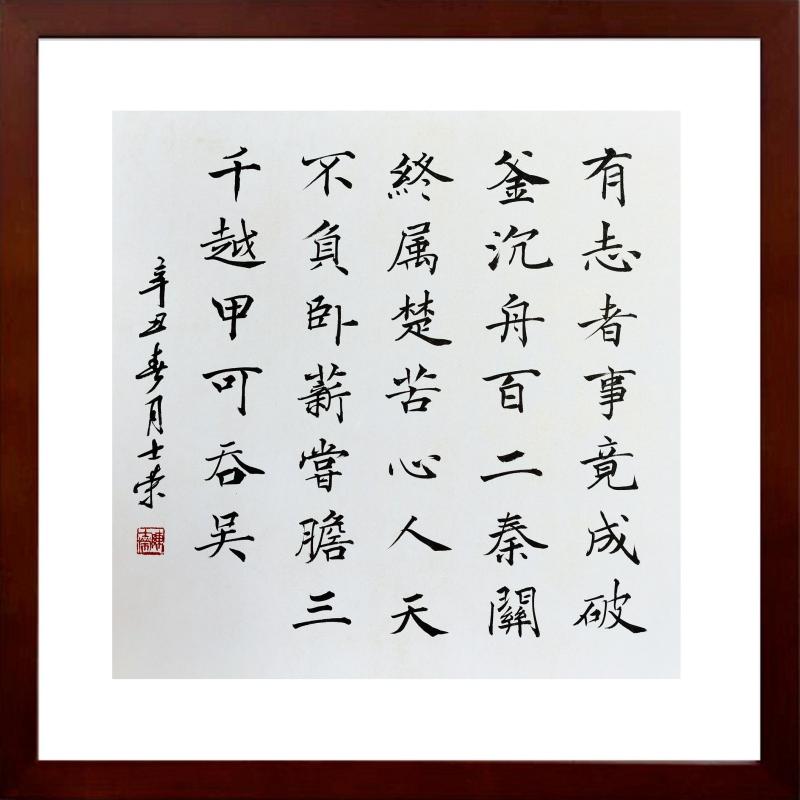 有志者事竟成破
釜沉舟百二秦關
終属楚苦心人天
不負卧薪嘗膽三
千越甲可吞吴
辛丑春月士荣